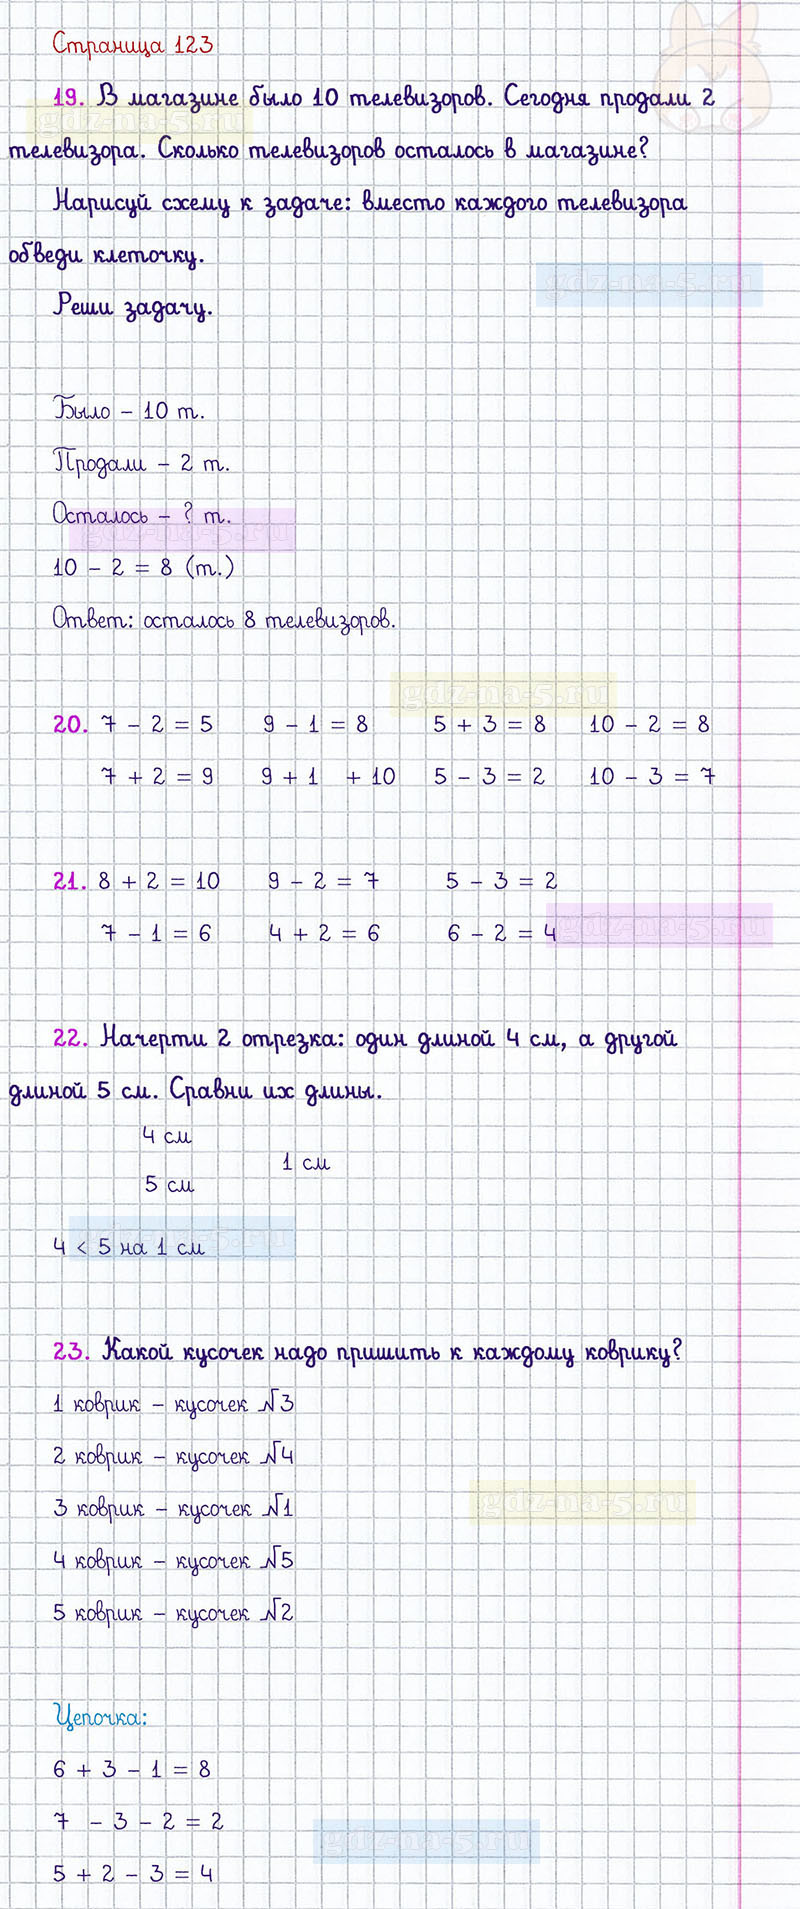 Страница 123
19. В магазине было 10 телевизоров. Сегодня продали 2
телевизора. Сколько телевизоров осталось в магазине?
Нарисуй схему к задаче: вместо каждого телевизора
обведи клеточку.
gdz-na-5.ru
gdz-na-5.ru
Реши задачу.
Было – 10 т.
Продали – 2 т.
Осталось – ? т.
gdz-na-5.ru
10 – 2 = 8 (т.)
Ответ: осталось 8 телевизоров.
gdz-na-5.ru
20. 7 – 2 = 5 9 – 1 = 8 5 + 3 = 8 10 – 2 = 8
7 + 2 = 9 9 + 1 + 10 5 – 3 = 2 10 – 3 = 7
21. 8 + 2 = 10 9 – 2 = 7 5 – 3 = 2
7 – 1 = 6 4 + 2 = 6 6 – 2 = 4
gdz-na-5.ru
22. Начерти 2 отрезка: один длиной 4 см, а другой
длиной 5 см. Сравни их длины.
4 см
1 см
5 см
gdz-na-5.ru
4 < 5 на 1 см
23. Какой кусочек надо пришить к каждому коврику?
1 коврик – кусочек №3
2 коврик – кусочек №4
gdz-na-5.ru
3 коврик – кусочек №1
4 коврик – кусочек №5
5 коврик – кусочек №2
Цепочка:
6 + 3 – 1 = 8
7 – 3 – 2 = 2
gdz-na-5.ru
5 + 2 – 3 = 4